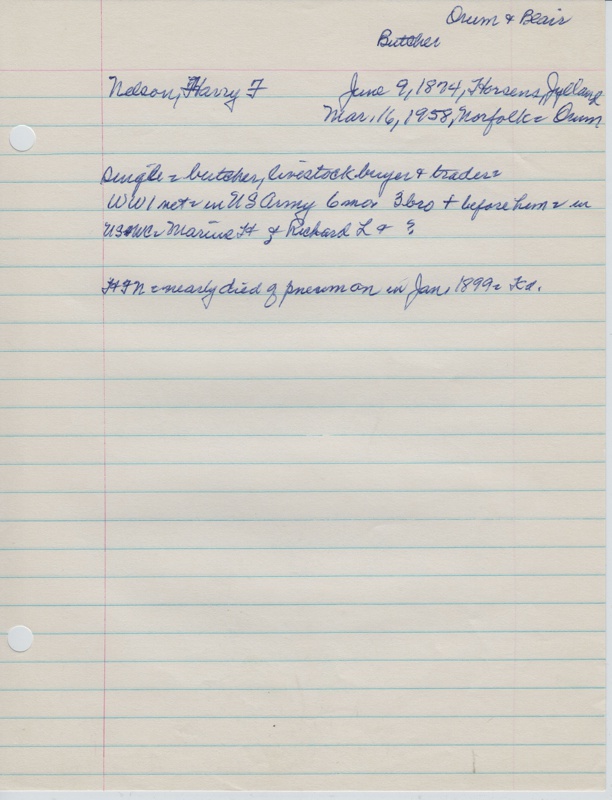 Orum & Blair
Butcher
Nelson, Harry F June 9, 1874, Horsens, Jylland
Mar. 16, 1958, Norfolk = Orum
Single = butcher, livestock buyer & trader =
WW1 not = in US Army 6 mo. 3 bro + before him = in
US WC = Marius H & Richard L & ?
HFN = nearly died of pneumon in Jan. 1899 =